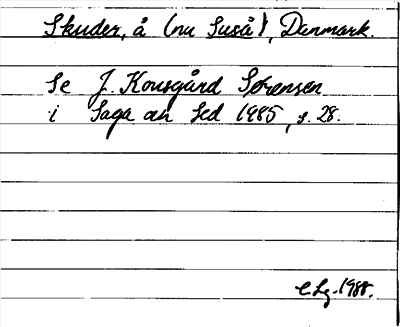 Skuder, å (nu Suså), Danmark.
Se J. Kousgård Sørensen
i Saga och Sed 1985, s. 28.
C.Lg. 1988.